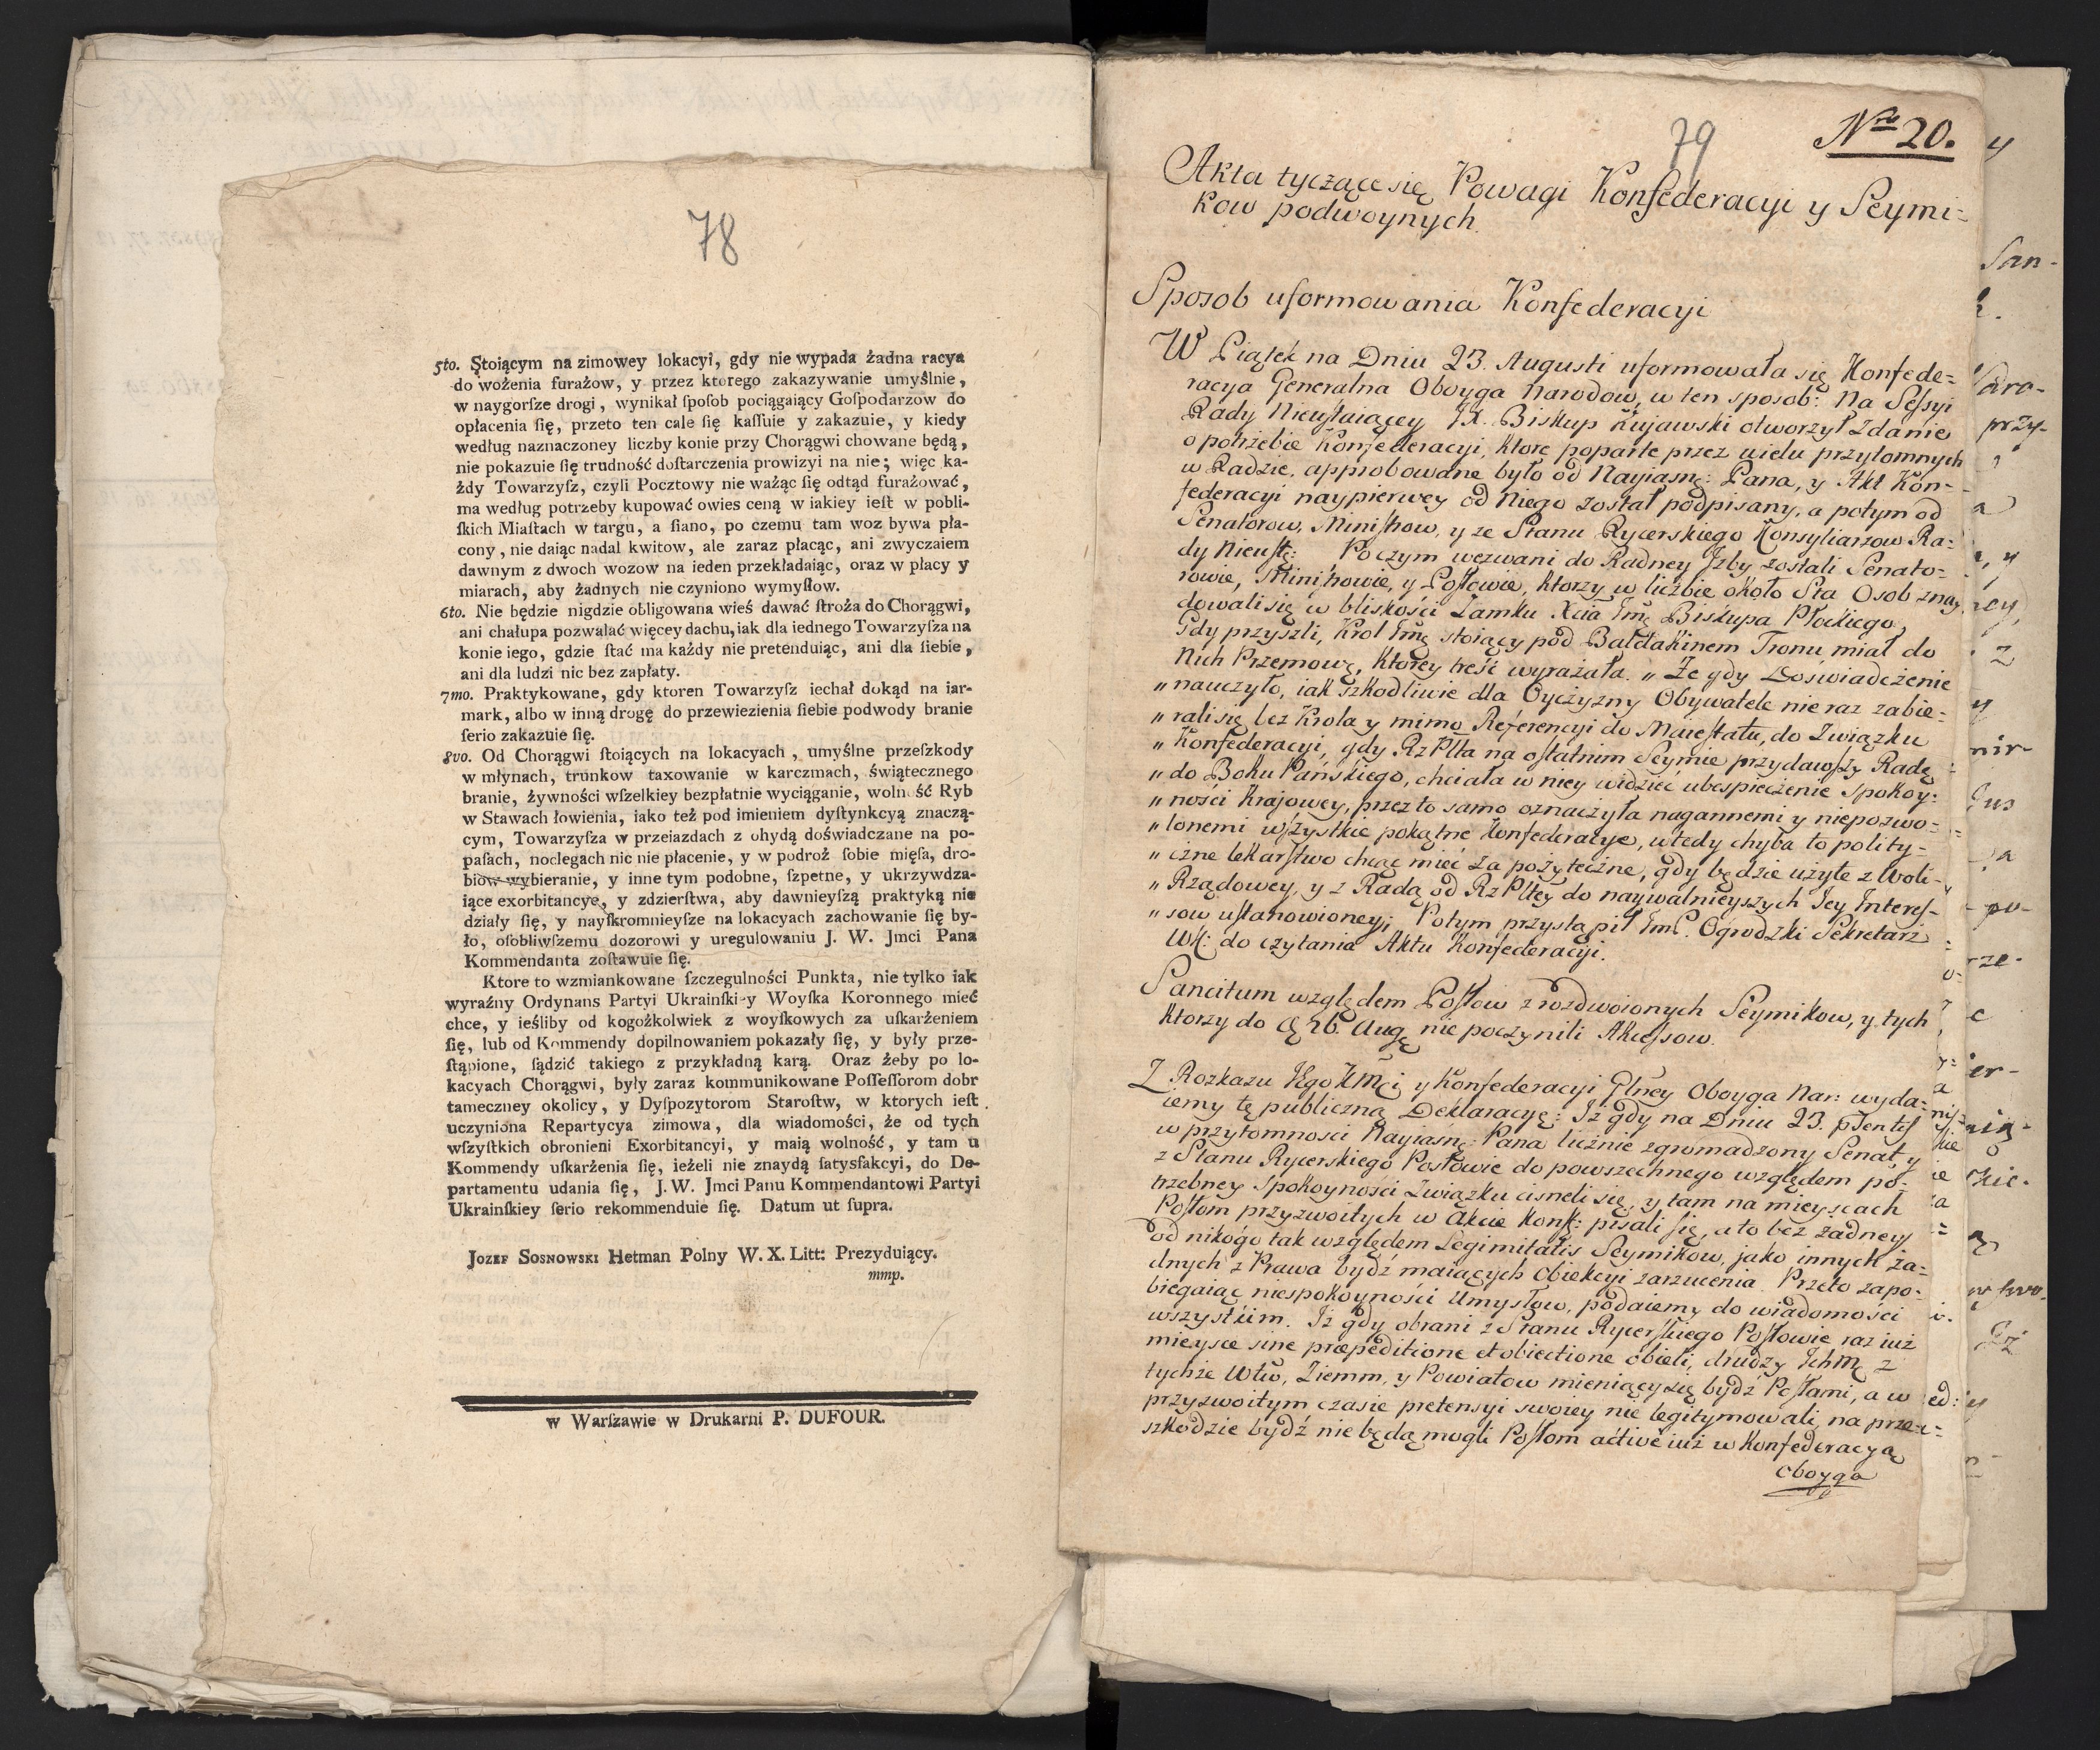 78
5to. Stoiącym na zimowey lokacyi, gdy nie wypada żadna racya
do wożenia furażow, y przez ktorego zakazywanie umyślnie,
w naygorſze drogi, wynikał ſpoſob pociągaiący Goſpodarzow do
opłacenia ſię, przeto ten cale ſię kaſſuie y zakazuie, y kiedy
według naznaczoney liczby konie przy Chorągwi chowane będą,
nie pokazuie ſię trudność doſtarczenia prowizyi na nie; więc ka-
żdy Towarzyſz, czyli Pocztowy nie ważąc ſię odtąd furażować,
ma według potrzeby kupować owies ceną w iakiey ieſt w pobli-
ſkich Miaſtach w targu, a ſiano, po czemu tam woz bywa pła-
cony, nie daiąc nadal kwitow, ale zaraz płacąc, ani zwyczaiem
dawnym z dwoch wozow na ieden przekładaiąc, oraz w płacy y
miarach, aby żadnych nie czyniono wymyſłow.
6to. Nie będzie nigdzie obligowana wieś dawać ſtroża do Chorągwi,
ani chałupa pozwalać więcey dachu, iak dla iednego Towarzyſza na
konie iego, gdzie ſtać ma każdy nie pretenduiąc, ani dla ſiebie,
ani dla ludzi nic bez zapłaty.
7mo. Praktykowane, gdy ktoren Towarzyſz iechał dokąd na iar-
mark, albo w inną drogę do przewiezienia ſiebie podwody branie
ſerio zakazuie ſię.
8vo. Od Chorągwi ſtoiących na lokacyach, umyślne przeſzkody
w młynach, trunkow taxowanie w karczmach, świątecznego
branie, żywności wſzelkiey bezpłatnie wyciąganie, wolność Ryb
w Stawach łowienia, iako też pod imieniem dyſtynkcyą znaczą-
cym, Towarzyſza w przeiazdach z ohydą doświadczane na po-
paſach, noclegach nic nie płacenie, y w podroż ſobie mięſa, dro-
biow wybieranie, y inne tym podobne, ſzpetne, y ukrzywdza-
iące exorbitancye, y zdzierſtwa, aby dawnieyſzą praktyką nie
działy ſię, y nayſkromnieyſze na lokacyach zachowanie ſię by-
ło, oſobliwſzemu dozorowi y uregulowaniu J. W. Jmci Pana
Kommendanta zoſtawuie ſię.
Ktore to wzmiankowane ſzczegulności Punkta, nie tylko iak
wyraźny Ordynans Partyi Ukrainſkiey Woyſka Koronnego mieć
chce, y ieśliby od kogożkolwiek z woyſkowych za uſkarżeniem
ſię, lub od Kommendy dopilnowaniem pokazały ſię, y były prze-
ſtąpione, ſądzić takiego z przykładną karą. Oraz żeby po lo-
kacyach Chorągwi, były zaraz kommunikowane Poſſeſſorom dobr
tameczney okolicy, y Dyſpozytorom Staroſtw, w ktorych ieſt
uczyniona Repartycya zimowa, dla wiadomości, że od tych
wſzyſtkich obronieni Exorbitancyi, y maią wolność, y tam u
Kommendy uſkarżenia ſię, ieżeli nie znaydą ſatysfakcyi, do De-
partamentu udania ſię, J. W. Jmci Panu Kommendantowi Partyi
Ukrainſkiey ſerio rekommenduie ſię. Datum ut ſupra.
JOZEF SOSNOWSKI Hetman Polny W. X. Litt: Prezyduiący.
mmp.
w Warſzawie w Drukarni P. DUFOUR.
79
Nro 20.
Akta tyczące się Powagi Konfederacyi y Seymi=
kow podwoynych.
Sposob uformowania Konfederacyi
W Piątek na Dniu 23. Augusti uformowała się Konfede=
racya Generalna Oboyga Narodow, w ten sposob: Na Seſsyi
Rady Nieuſtaiącey JX. Biskup Kujawski otworzył zdanie
o potrzebie Konfederacyi, ktore poparte przez wielu przytomnych
w Radzie, approbowane było od Nayiasnę: Pana, y Akt Kon-
federacyi naypierwey od Niego został podpisany, a potym od
Senatorow, Ministrow, y ze Stanu Rycerskiego Konsyliarzow Ra=
dy Nieustę: Poczym wezwani do Radney Jzby zostali Senato=
rowie, Ministrowie, y Posłowie, ktorzy w liczbie około Sta Osob znay
dowali się w bliskości Zamku Xcia Jmę Biskupa Płockiego,
Gdy przyszli, Krol Jmę stoiący pod Baldakinem Tronu miał do
Nich Przemowę, ktorey treść wyrażała. „Ze gdy Doświadczenie
„nauczyło, iak szkodliwie dla Oyczyzny Obywatele nie raz zabie=
„rali się bez Krola y mimo Referencyi do Maiestatu, do Związku
„Konfederacyi, gdy RzPlta na ostatnim Seymie przydawszy Radę
„do Boku Pańskiego, chciała w niey widzieć ubespieczenie Spokoy:
„ności Krajowey, przez to samo oznaczyła nagannemi y niepozwo=
„lonemi wszystkie pokątne Konfederacye, wtedy chyba to polity-
„czne lekarstwo chcąc mieć za pożyteczne, gdy będzie użyte z Woli
„Rządowey, y z Radą od RzPltey do naywalnieyszych Jey Intereſ-
„sow ustanowioney; Potym przystąpił JmP. Ogrodzki Sekretarz
WK: do czytania Aktu Konfederacyi.
Sancitum względem Posłow z rozdwoionych Seymikow, y tych
ktorzy do 26. Augę nie poczynili Akceſsow.
Z Rozkazu JEgo KMci y Konfederacyi Glney Oboyga Nar: wyda=
iemy tę publiczną Deklaracyę: Jż gdy na Dniu 23. pſentis
w przytomnosci Nayiaśnę: Pana licznie zgromadzony Senat y
z Stanu Rycerskiego Posłowie do powszechnego względem po-
trzebney Spokoyności Związku cisneli się, y tam na mieyscach
Posłom przyzwoitych w Akcie Konf: pisali się, a to bez żadney
od nikogo tak względem Legimitatis Seymikow, jako innych ża=
dnych z Prawa bydź maiących Obiekcyi zarzucenia. Przeto zapo=
biegaiąc niespokoyności Umysłow, podaiemy do wiadomości
wszystkim. Jż gdy obrani z Stanu Rycerskiego Posłowie raz iuż
mieysce sine præpeditione et obiectione obieli, drudzy Jchmę z
tychże Wtw, Ziemm, y Powiatow mieniący się bydź Posłami, a w
przyzwoitym czasie pretensyi swoiey nie legitymowali, na prze-
szkodzie bydź nie będą mogli Posłom active iuż w Konfederacyą
oboyga